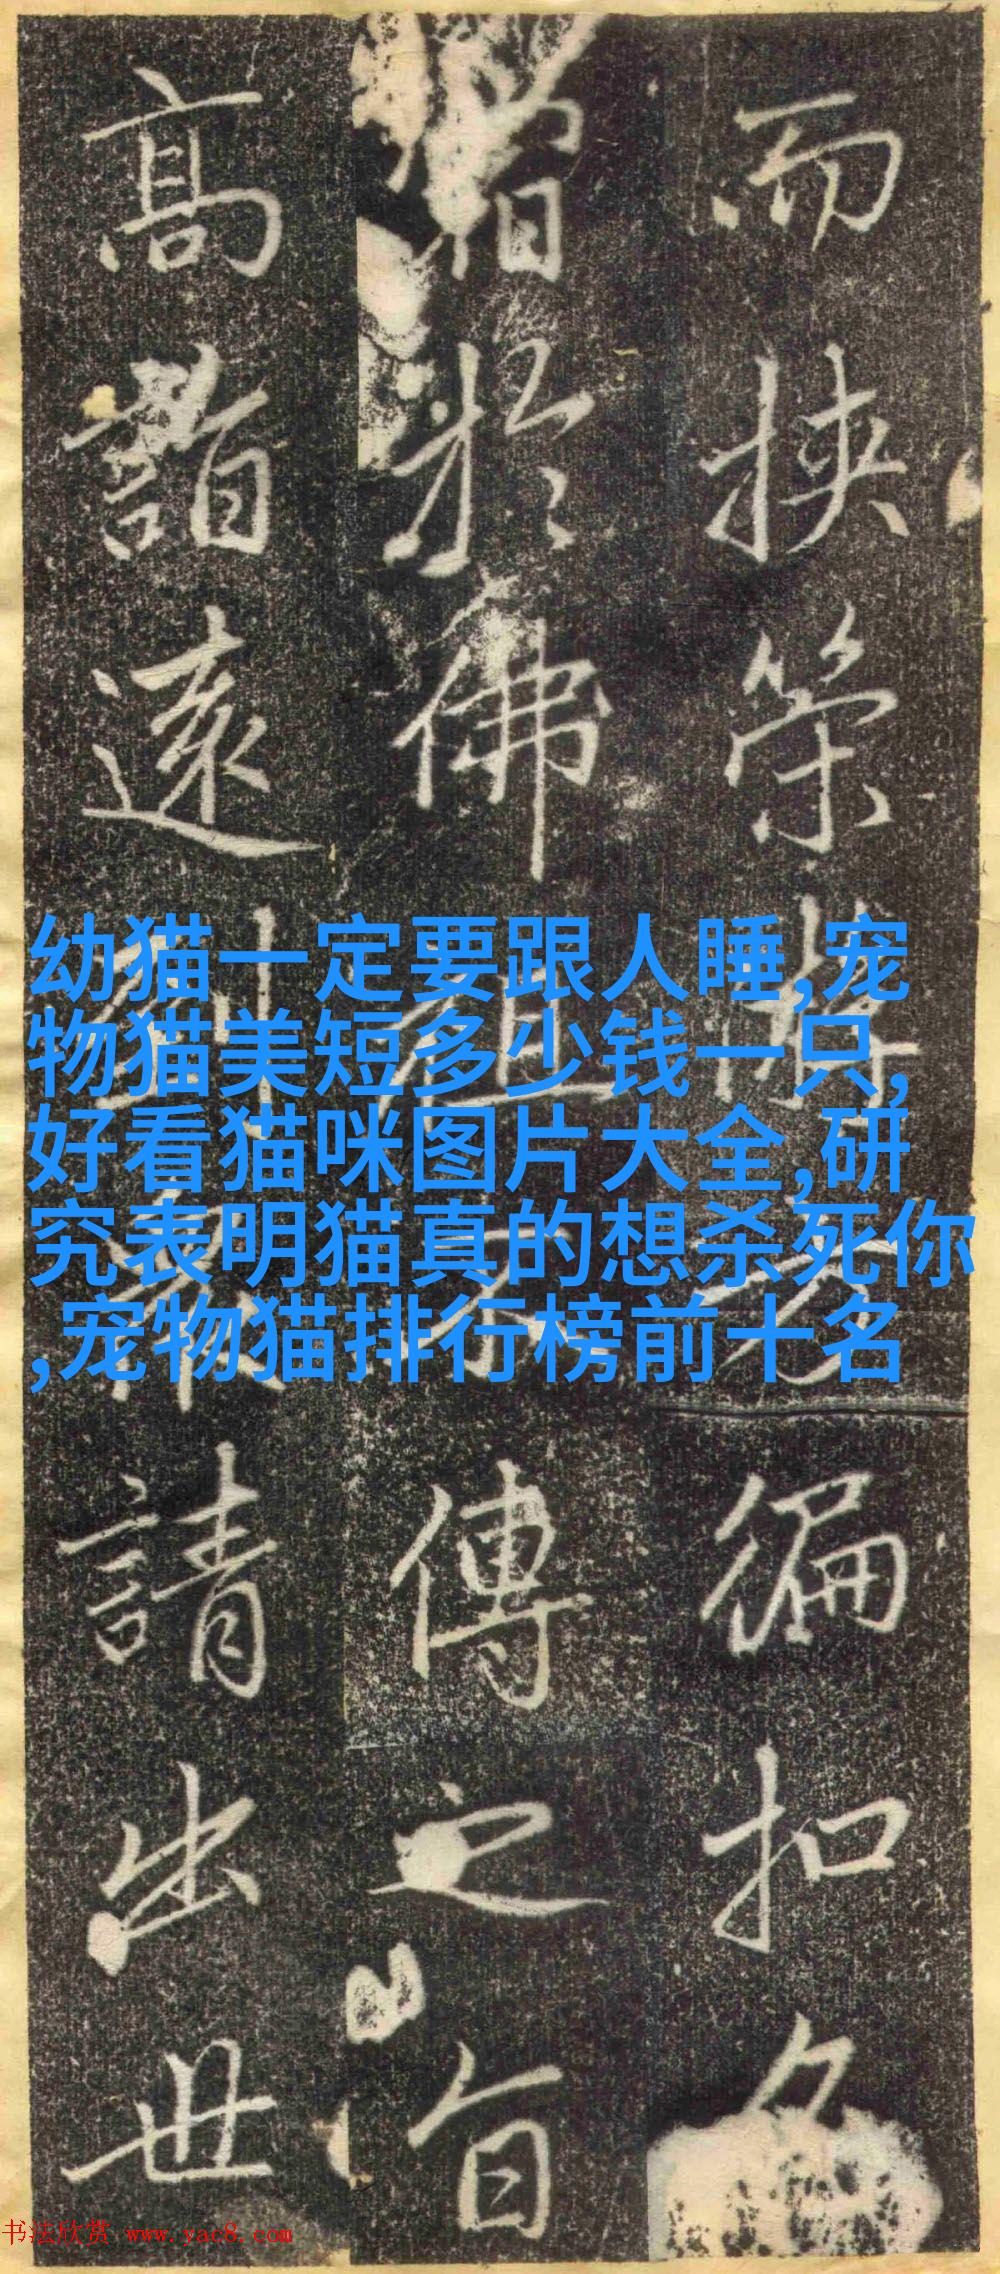 而挾策操方徧扣名
旨於佛祖不傳之旨
高詣遠到衆請出世
幼猫一定要跟人睡,宠
物猫美短多少钱一只,
好看猫咪图片大全,研
究表明猫真的想杀死你
,宠物猫排行榜前十名
书法欣赏 www.yac8.com